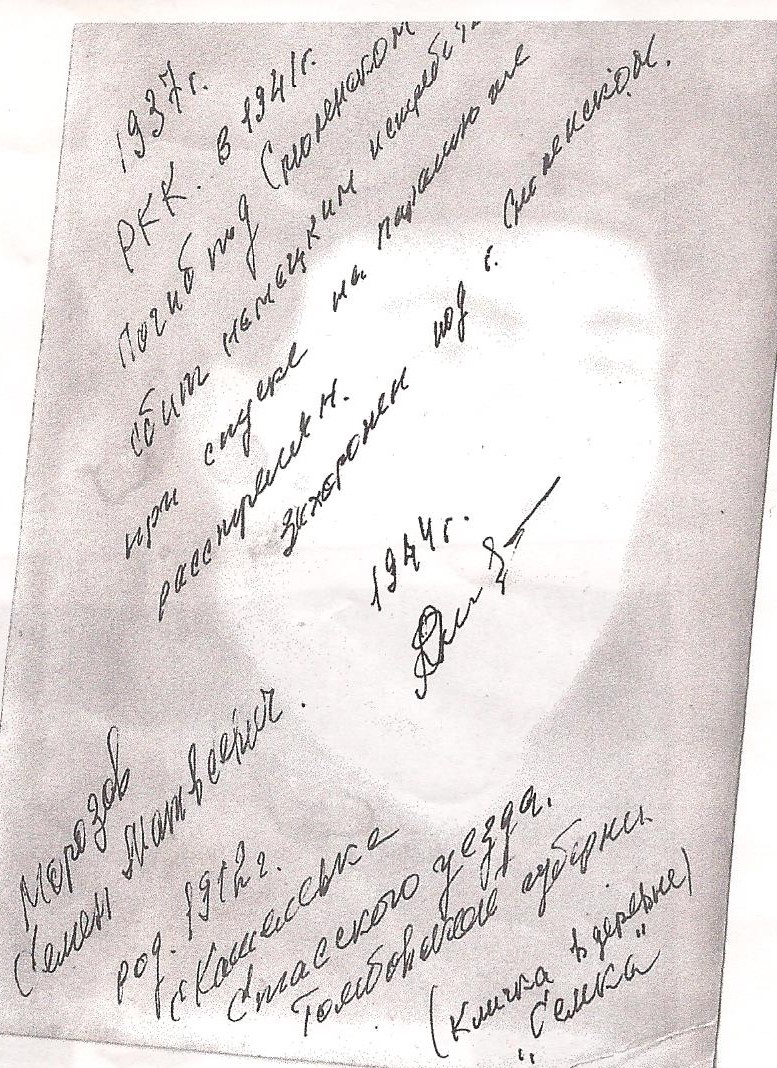 1937г.
РКК. в 1941г.
Погиб под Смоленском
сбит немецким истреби
при спуске на парашюте
расстрелян.
Захоронен под г. Смоленском.
1944г.
Морозов
Семен Матвеевич.
род. 1912г.
с Кашеевка
Спасского уезда.
Тамбовской губерни
(Кличка в деревне)
"Семка"